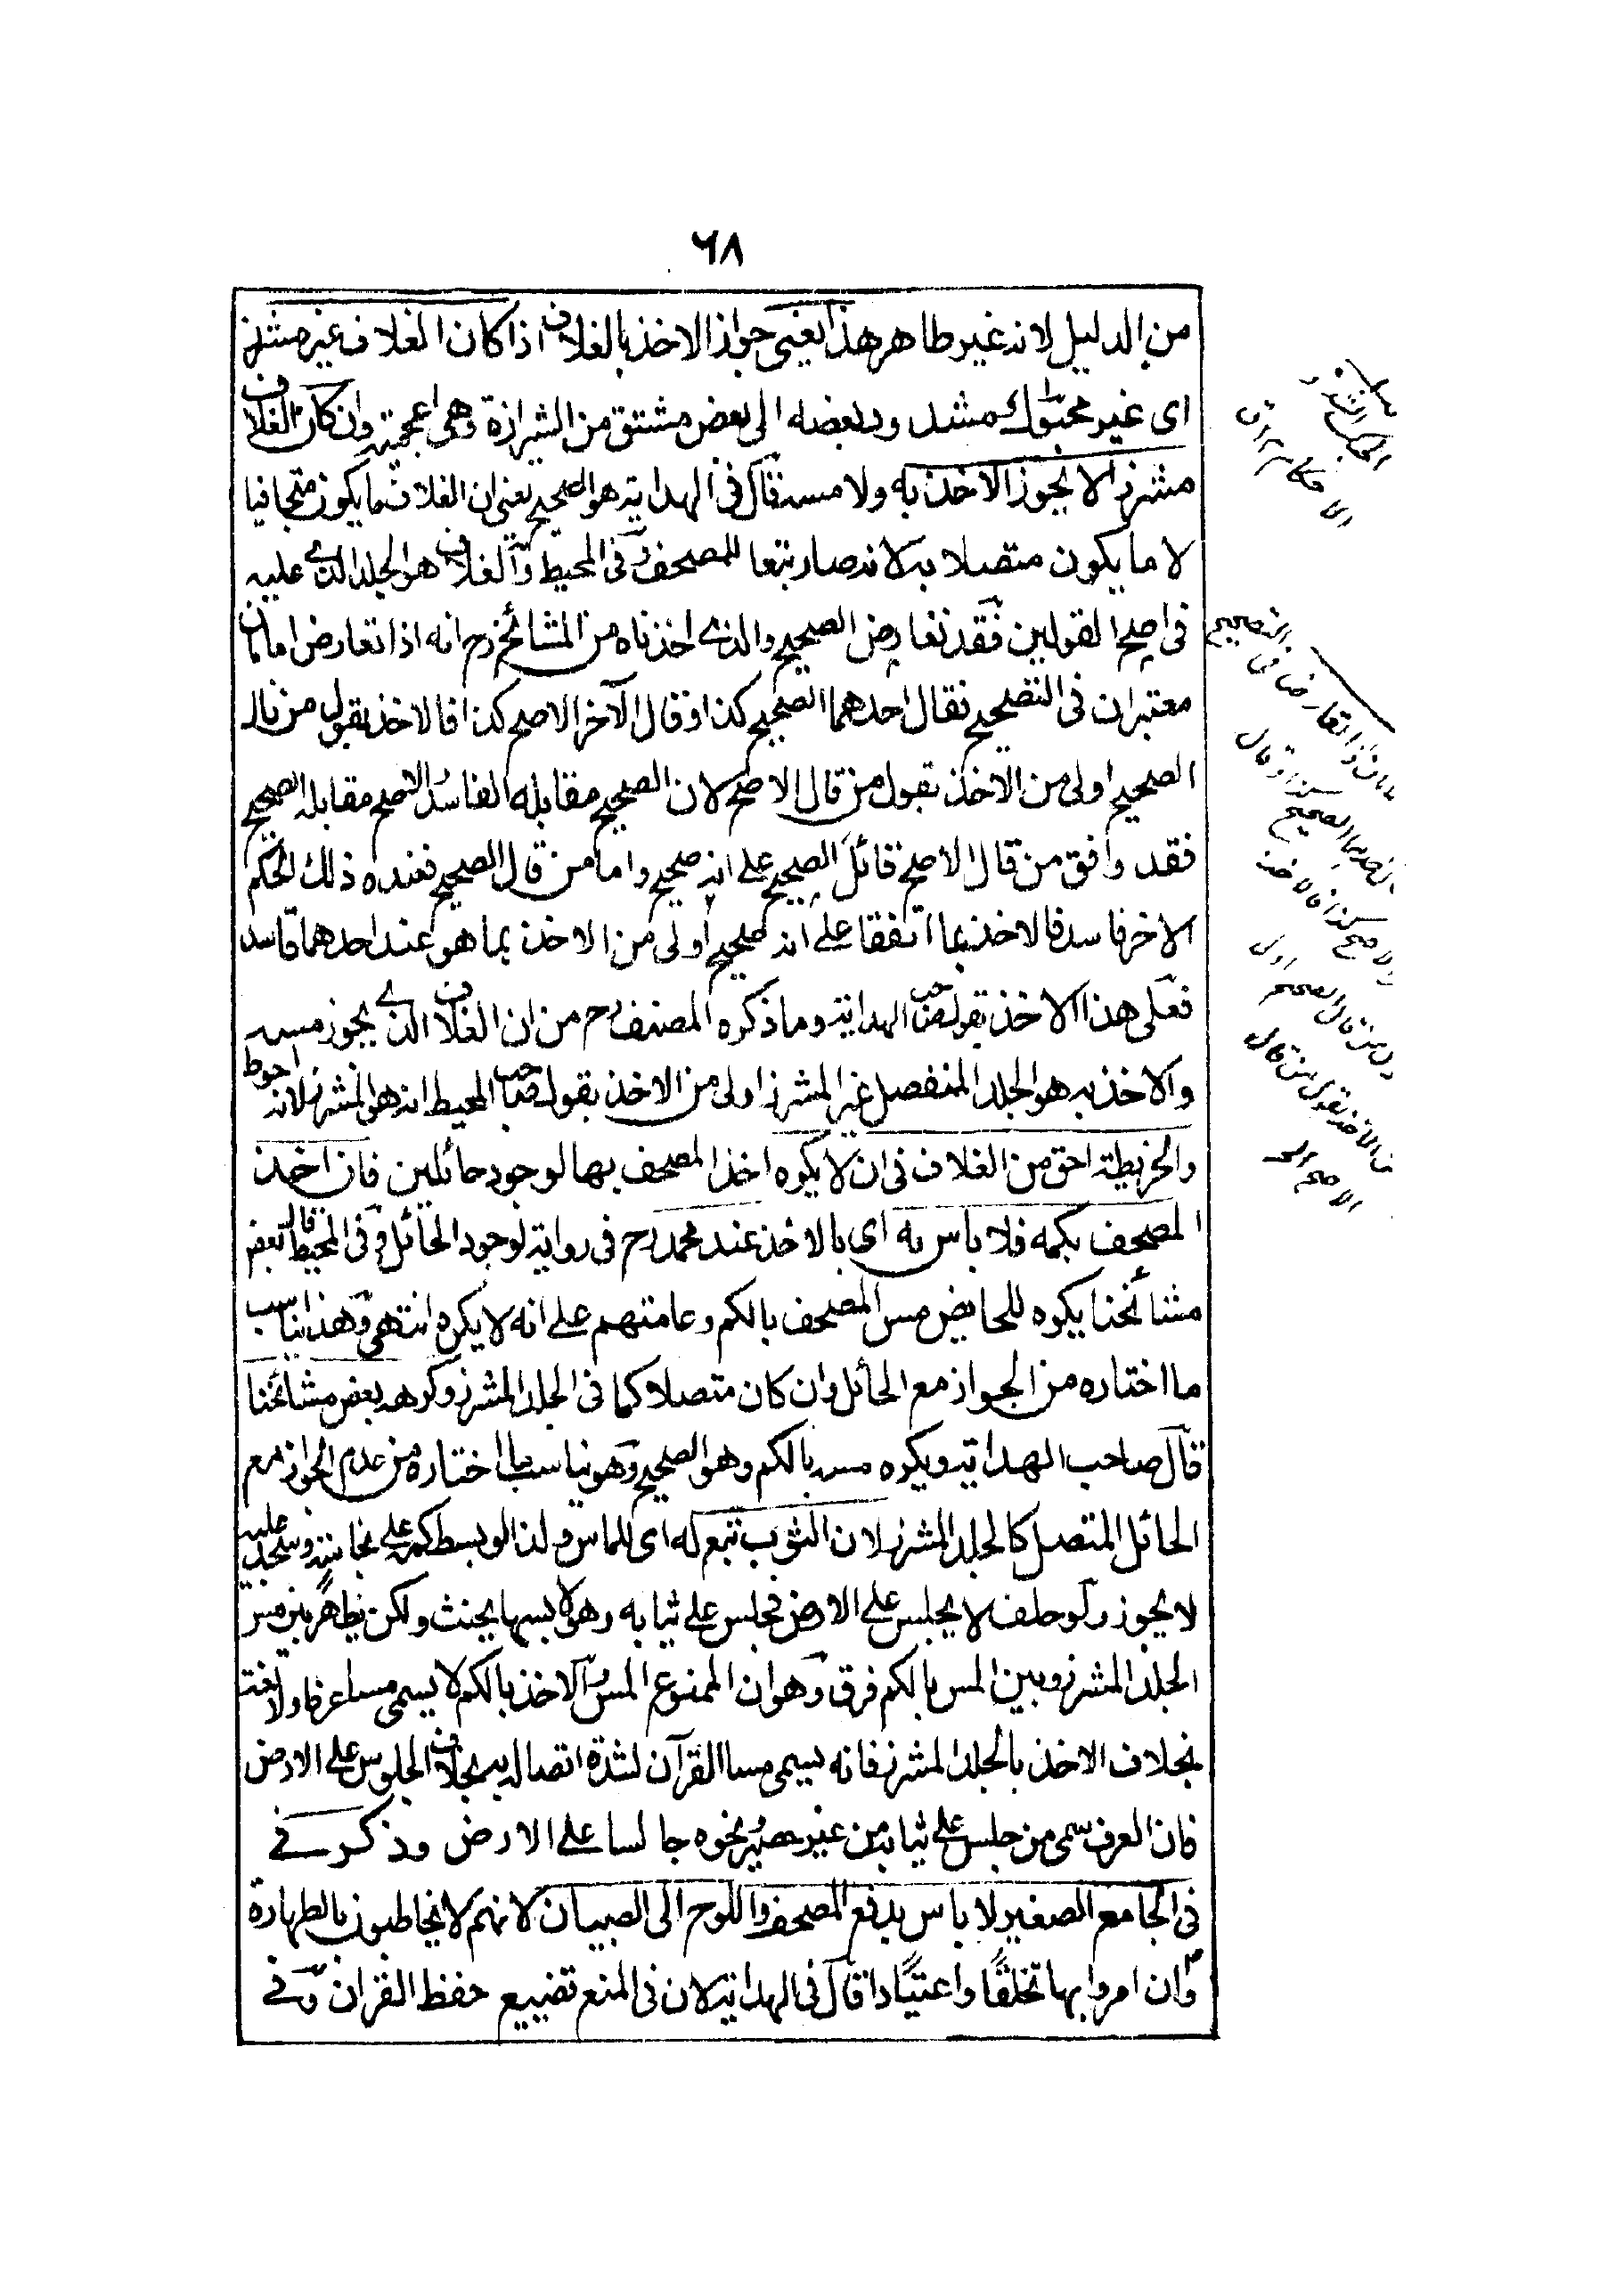 ٦٨
من الدليل لانه غير طاهر هذا يعنى جواز الاخذ بالغلاف اذا كان الغلاف غير مشرز
اى غير محبوك مشدود بعضه الى بعض مشتق من الشيرازة وهى اعجمية وان كان الغلاف
مشرزا لا يجوز الاخذ به ولا مسه قال فى الهداية هو الصحيح يعنى ان الغلاف ما يكون متجافيا
لا ما يكون متصلا به لانه صار تبعا للمصحف وفى المحيط والغلاف هو الجلد الذى عليه
فى اصح القولين فقد تعارض الصحيح والذى اخذناه من المشائخ رح انه اذا تعارض امامان
معتبران فى التصحيح فقال احدهما الصحيح كذا وقال الآخر الاصح كذا فالاخذ بقول من قال
الصحيح اولى من الاخذ بقول من قال الاصح لان الصحيح مقابله الفاسد والاصح مقابله الصحيح
فقد وافق من قال الاصح قائل الصحيح على انه صحيح واما من قال الصحيح فعنده ذلك الحكم
الاخر فاسد فالاخذ بما اتفقا على انه صحيح اولى من الاخذ بما هو عند احدهما فاسد
فعلى هذا الاخذ بقول صاحب الهداية وما ذكره المصنف رح من ان الغلاف الذى يجوز مسه
والاخذ به هو الجلد المنفصل غير المشرز اولى من الاخذ بقول صاحب المحيط انه هو المشرز لانه احوط
والخريطة احق من الغلاف فى ان لا يكره اخذ المصحف بها لوجود حائلين فان اخذ
المصحف بكمه فلا باس به اى بالاخذ عند محمد رح فى رواية لوجود الحائل وفى المحيط قال بعض
مشائخنا يكره للحايض مس المصحف بالكم وعامتهم على انه لا يكره انتهى وهذا يناسب
ما اختاره من الجواز مع الحائل وان كان متصلا كما فى الجلد المشرز وكرهه بعض مشائخنا
قال صاحب الهداية ويكره مسه بالكم وهو الصحيح وهو يناسب ما اختاره من عدم الجواز مع
الحائل المتصل كالجلد المشرز لان الثوب تبع له اى للماس ولذا لو بسط كمه على نجاسة وسجد عليه
لا يجوز ولو حلف لا يجلس على الارض فجلس على ثيابه وهو لابسها يحنث ولكن يظاهر بين مس
الجلد المشرز وبين المس بالكم فرق وهو ان الممنوع المس والاخذ بالكم لا يسمى مسا عرفا ولا لغة
بخلاف الاخذ بالجلد المشرز فانه يسمى مسا القرآن لشدة اتصاله به بخلاف الجلوس على الارض
فان العرف سمى من جلس على ثيابه من غير حصير نحوه جالسا على الارض وذكر فى
فى الجامع الصغير لا باس بدفع المصحف واللوح الى الصبيان لانهم لا يخاطبون بالطهارة
وان امروا بها تخلقا واعتيادا قال فى الهداية لان فى المنع تضييع حفظ القران وفى